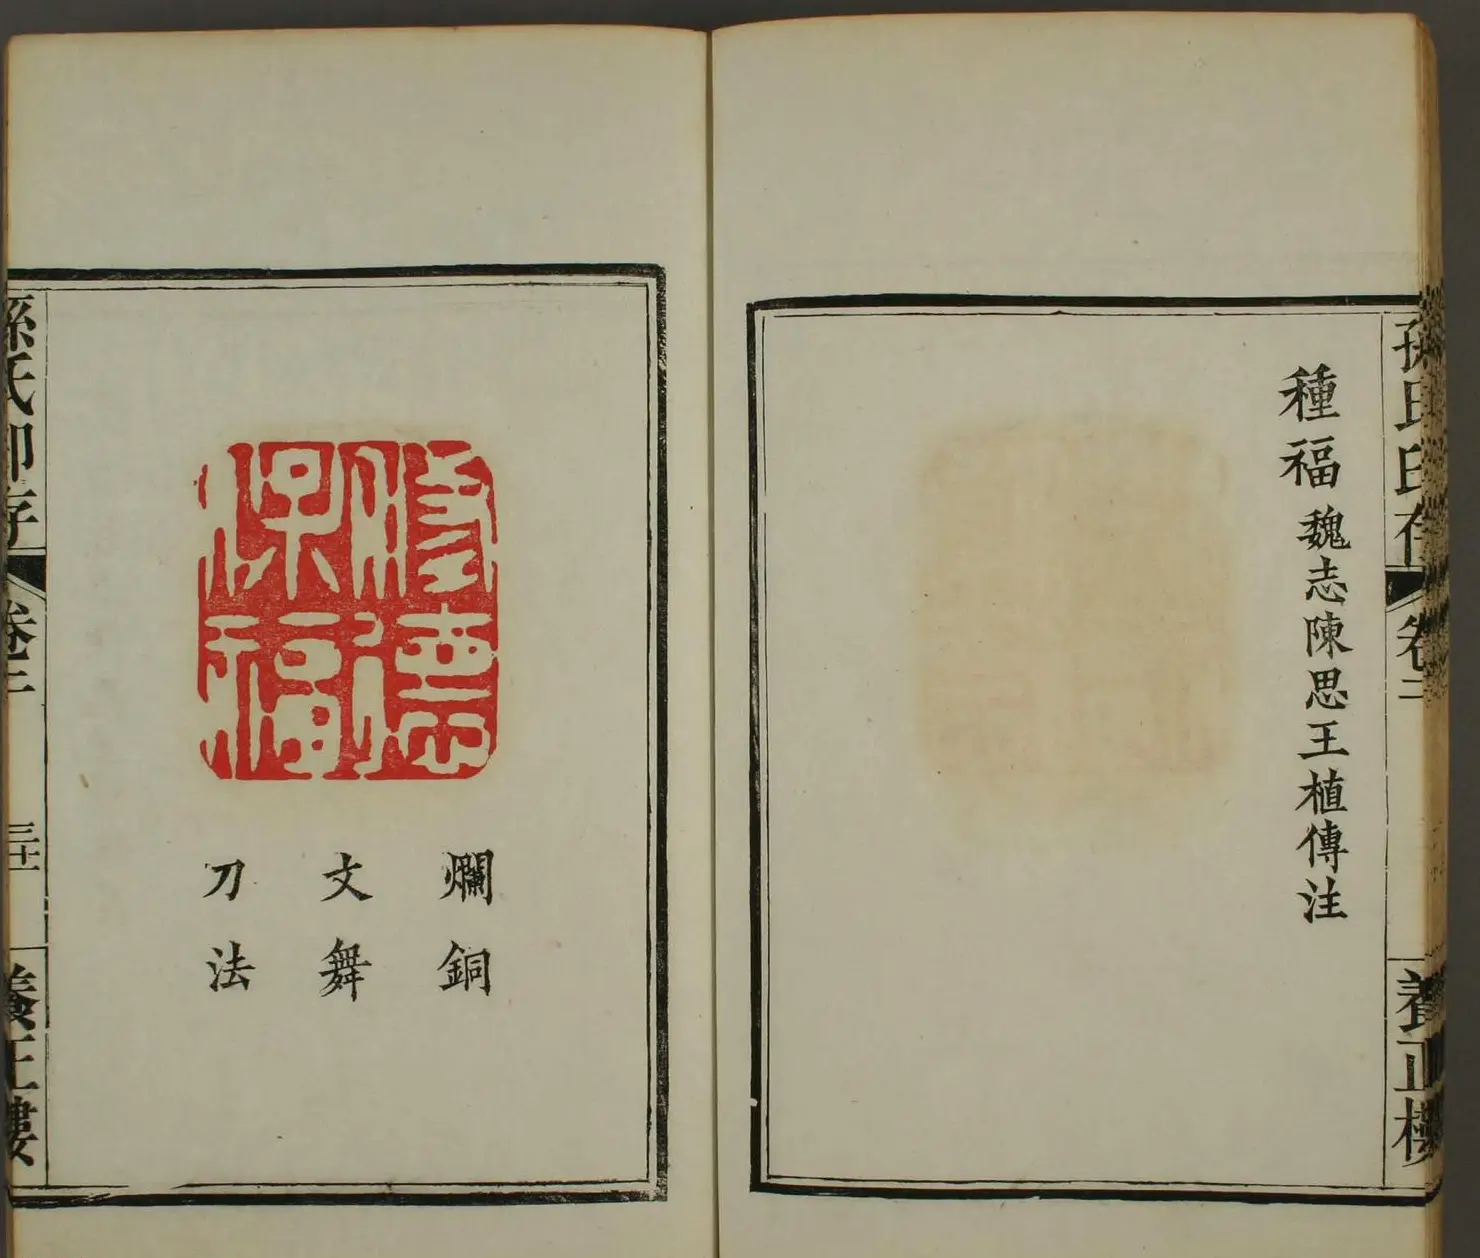 孫氏印存
卷二
養正樓
種福 魏志陳思王植傳注
修德
保福
爛銅
文舞
刀法
孫氏印存
卷二
三十一
養正樓